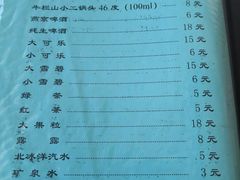 牛栏山小二锅头46度(100ml) 8元
燕京啤酒 6元
纯生啤酒 18元
大可乐 15元
小可乐 6元
大雪碧 15元
小雪碧 6元
绿茶 5元
红茶 5元
大果粒 18元
露露 8元
北冰洋汽水 5元
矿泉水 3元